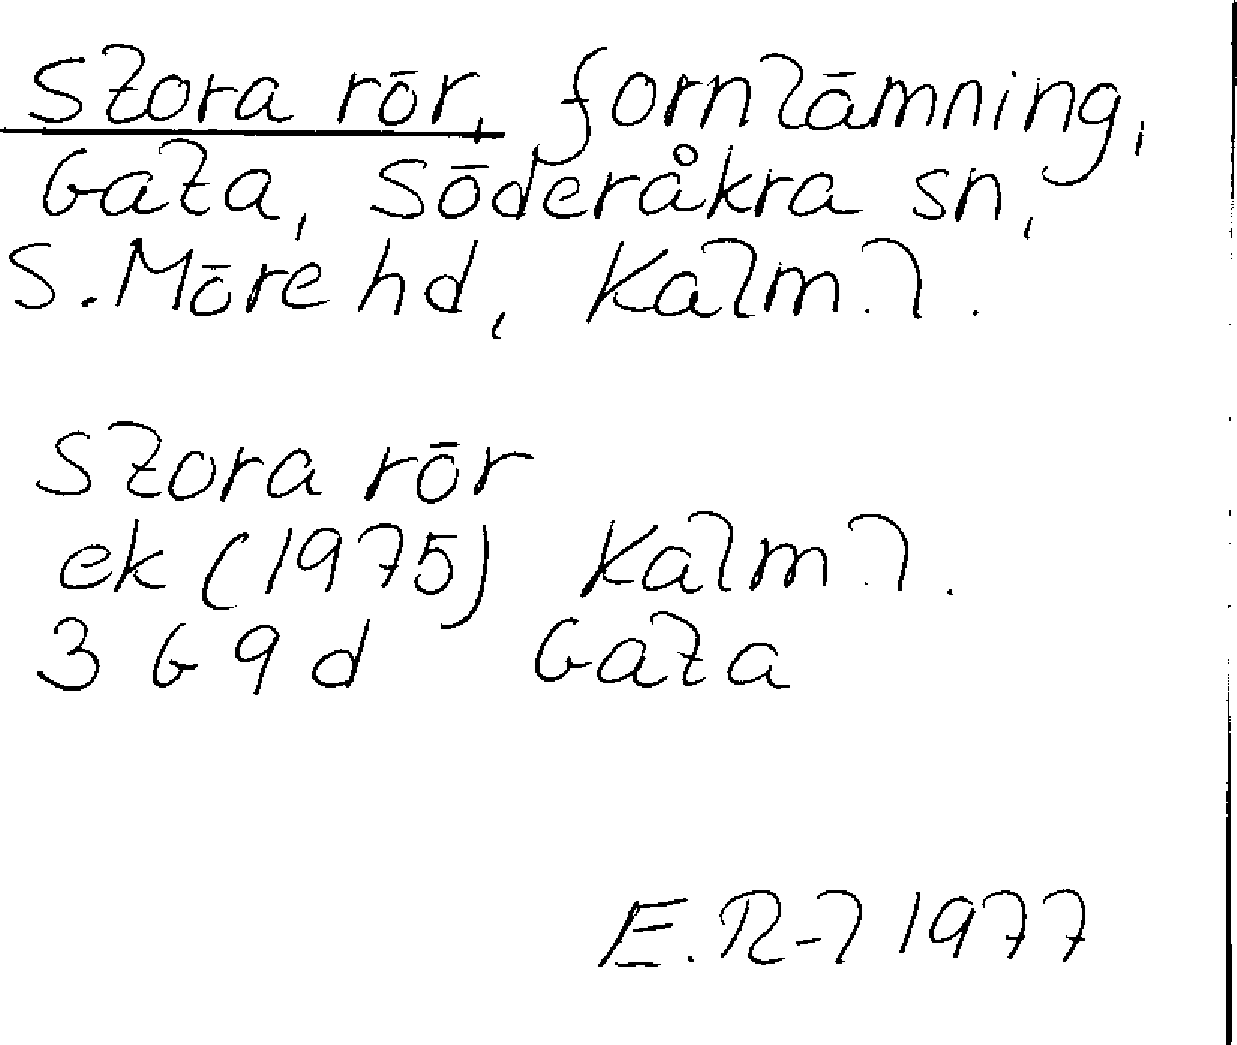 Stora rör, fornlämning,
Gata, Söderåkra sn,
S. Möre hd, Kalm. l.
Stora rör
ek (1975) Kalm. l.
3 G 9 d Gata
E. R-l 1977